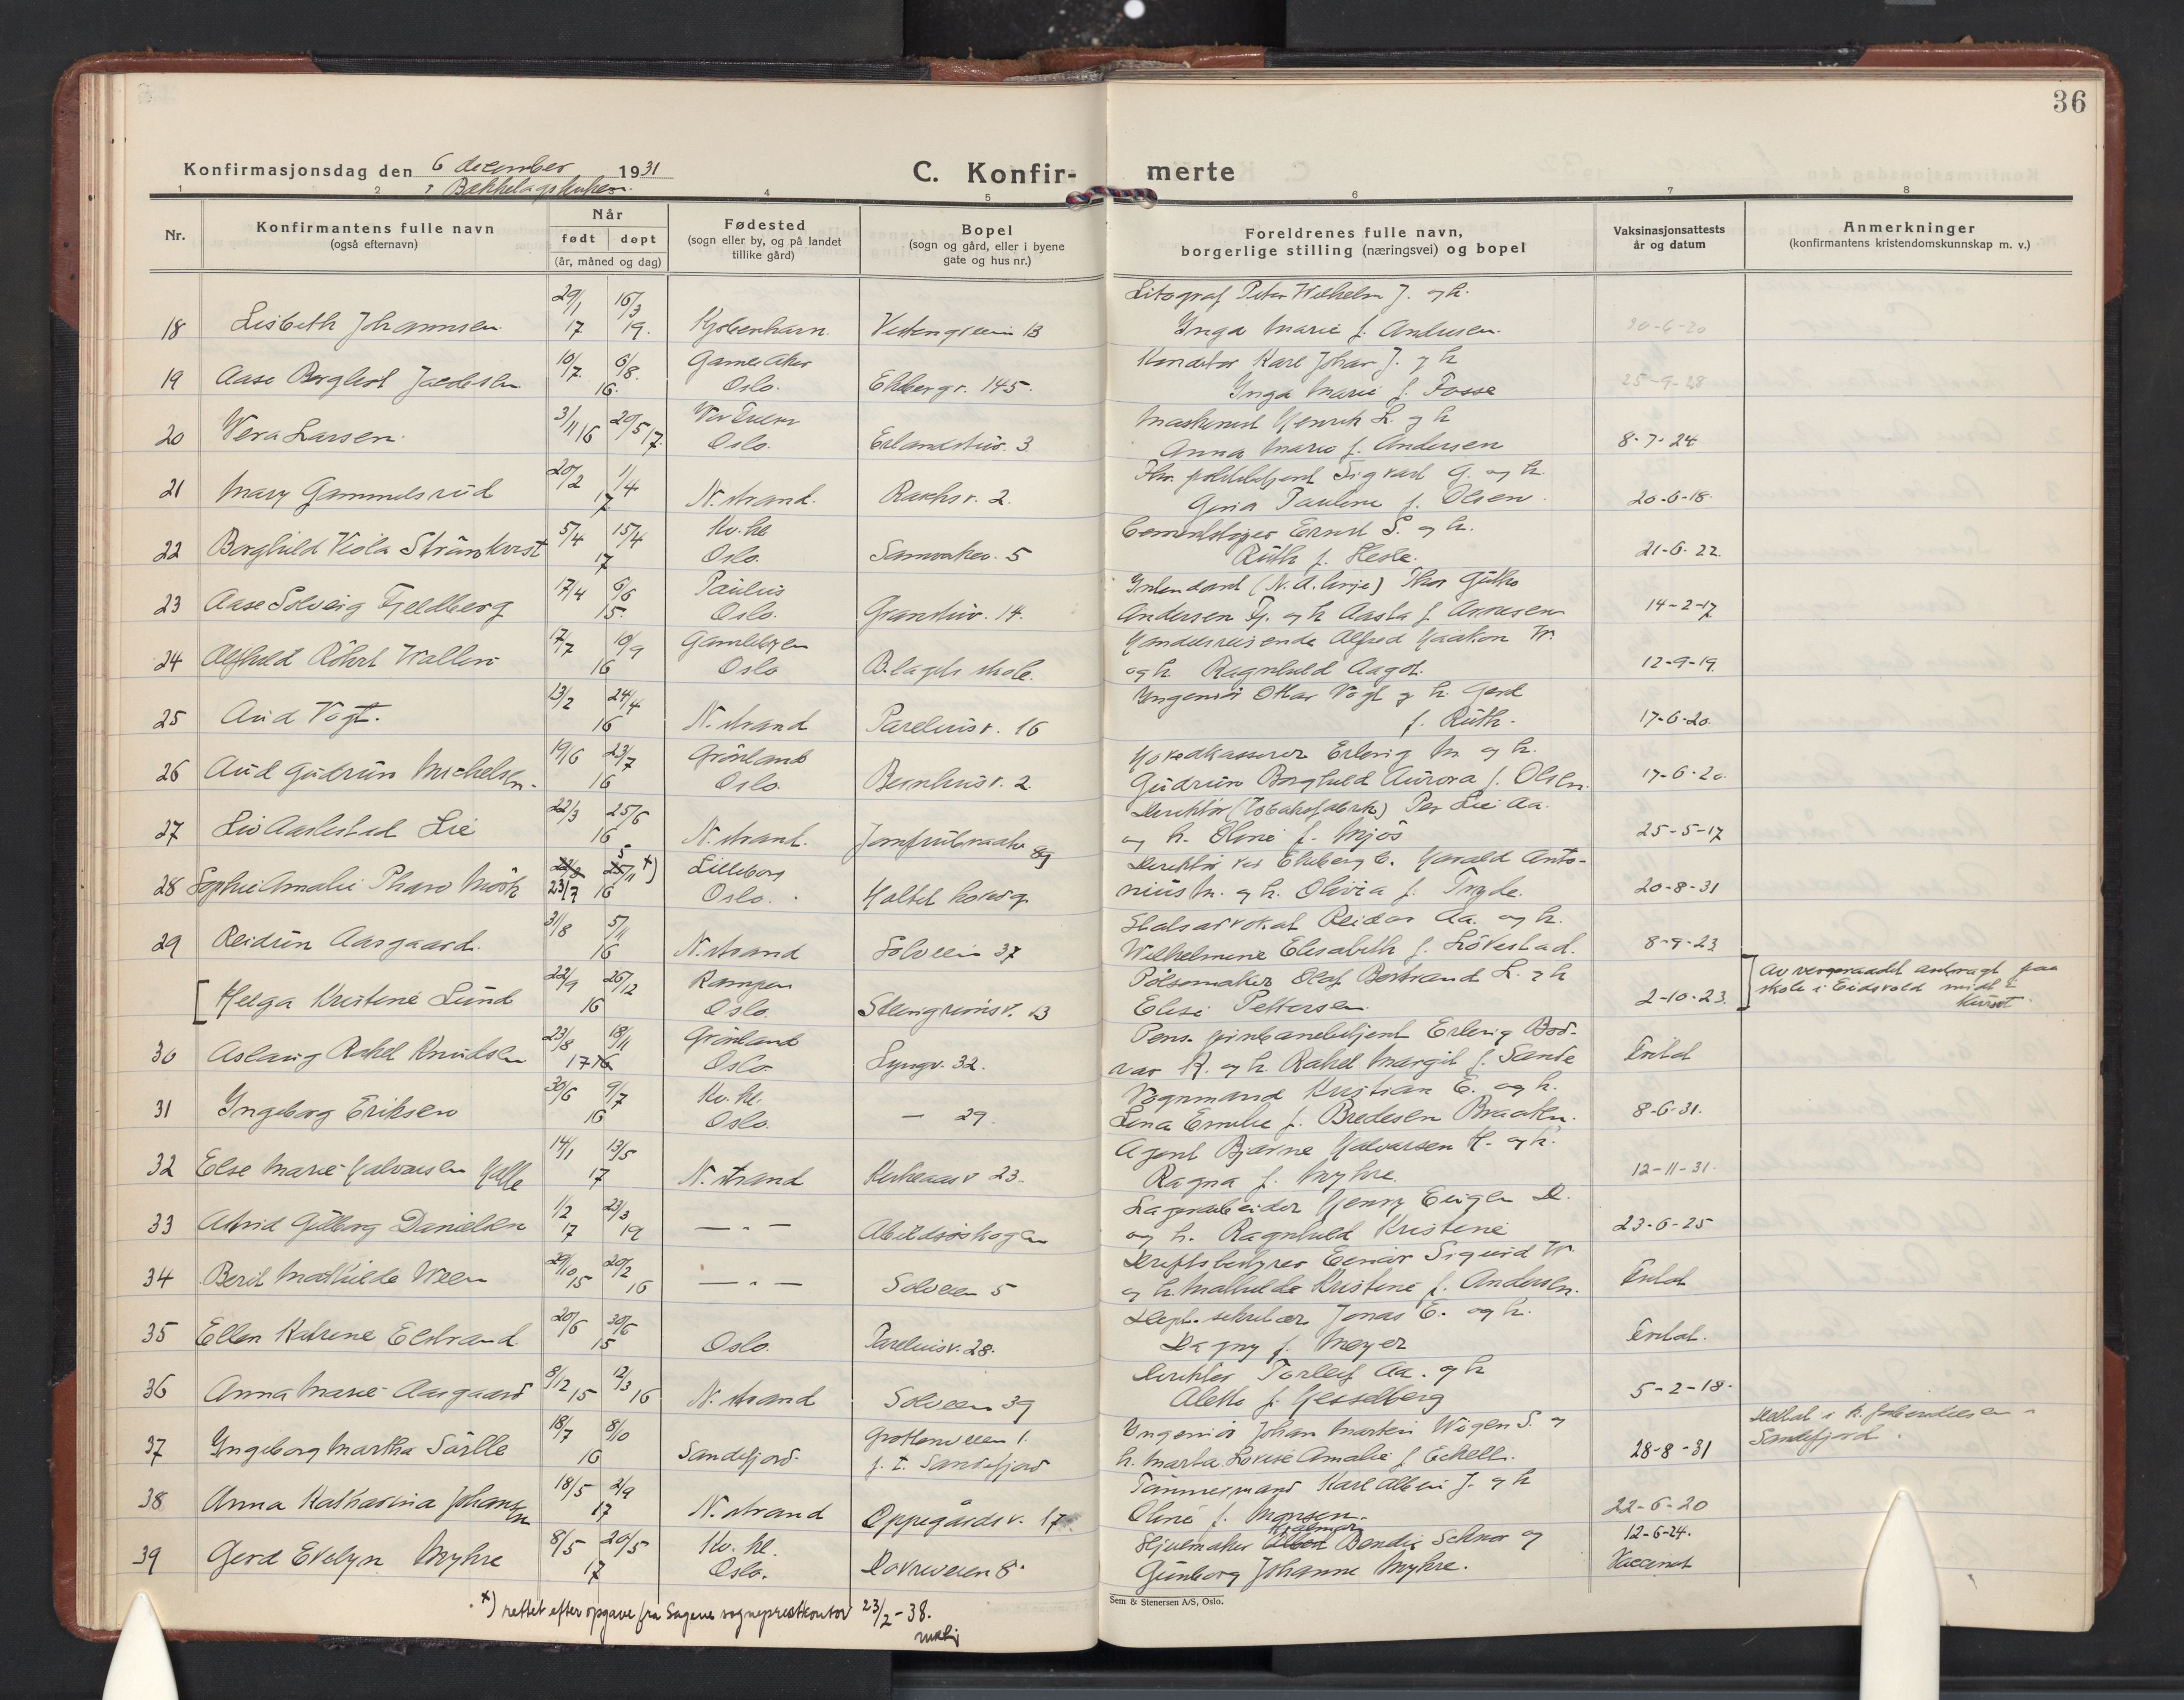 36
Konfirmasjonsdag den 6 december 1931
i Bækkelagskirken.
C. Konfir- merte
1 2 3 4 5 6 7 8
Nr.
Konfirmantens fulle navn
(også efternavn)
Når
født døpt
(år, måned og dag)
Fødested
(sogn eller by, og på landet
tillike gård)
Bopel
(sogn og gård, eller i byene
gate og hus nr.)
Foreldrenes fulle navn,
borgerlige stilling (næringsvei) og bopel
Vaksinasjonsattests
år og datum
Anmerkninger
(konfirmantens kristendomskunnskap m. v.)
29/1 16/3 Litograf Peter Wilhelm J. og h.
18 Lisbeth Johannsen 17 19. Kjøbenhavn. 13 Inga Marie f. Andresen. 30-6-20
10/7. 6/8. Gamle Aker Konditor Karl Johan J. og h
19 Aase Borghest 16. Oslo. Ekebergv. 145. Inga Marie f. Fosse 25-9-28
3/11 16 20/5 17. Vor Frelser Maskinist Henrik L. og h
20 Vera Larsen. Oslo. Erlandstuv. 3. Anna Marie f. Andersen 8-7-24
20/2 1/4 Sigvart G. og h.
21 Mary Gammelsrud 17 N. strand. Ravnsv. 2. Pauline f. Olsen. 20-6-18.
5/4 15/4 Kv. hl. Ernst S. og h.
22 Borghild Viola Strømkvist 17 Oslo. 5 Ruth f. Hesle. 21-6-22.
17/4 6/6 Paulus Intendant (N. A. linje) Thor
23 Aase Solveig Fjeldberg 15. Oslo. Granstuv. 14. Andersen Fj. og h Aasta f. Arnesen 14-2-17
17/7 10/9 Gamlebyen Handelsreisende Alfred Haakon W.
24 Alfhild Röhrt Wallin 16 Oslo B.lagets skole. og h. Ragnhild Aagot. 12-9-19.
13/2 24/4 Ingeniør Ottar Vogt og h. Gerd
25 Aud Vogt. 16 N. strand Pareliusv. 16 f. Ruth. 17-6-20.
19/6 23/7 Grönland Hovedkasserer Erling M. og h.
26 Aud Gudrun Michelsen. 16 Oslo. 2. Gudrun Borghild Aurora f. Olsen. 17-6-20.
22/3 25/6 Direktør (Tobaksfabrik) Per Lie Aa.
27 Liv Aarlestad Lie 16 N. strand. Jomfrubraatv. 89 og h. Oline f. Mjøs 25-5-17
5 +) Lilleborg Direktör ved Ekeberg b. Harald Anto-
28 Sophie Amalie Pharo Mörk 23/7 16 Oslo. nius M. og h. Olivia f. Tryde. 20-8-31
31/8 5/11 Statsadvokat Reidar Aa. og h.
29 Reidun Aasgaard. 16 N. strand Solveien 37 Wilhelmine Elisabeth f. Lövestad. 8-9-23
22/9 26/12 Kampen Pølsemaker Olaf Bertrand L. og h Av vergeraadet anbragt paa
[ Helga Kristine Lund 16 Oslo. Steingrimsv. 23 Elise Pettersen 2-10-23. skole i Eidsvold midt i
kurset.
23/8 18/11 Grönland Pens. Erling Bod-
30 Aslaug Rakel Knudsen 17 16 Oslo Lyngv. 32. var K. og h. Rakel Margit f. Sande
30/6 9/7 Kv. hl. Vognmand Kristian E. og h.
31 Ingeborg Eriksen 16 Oslo. — 29. Lina Emilie f. Bredesen Braaten. 8-6-31.
14/1 13/5 Agent Bjarne Halvorsen H. og h.
32 Else Marie Halvorsen Halle 17 N. strand Kirkeaasv 23. Ragna f. Myhre. 12-11-31.
1/2 23/3 Lagerarbeider Henry Eugen D.
33 Astrid Gulborg Danielsen 17 19 — „ — Abildsöskogen og h. Ragnhild Kristine 23-6-25
29/10 20/2 Driftsbestyrer Einar Sigurd W.
34 Berit Mathilde Ween 15 16 — „ — Solveien 5 og h. Mathilde Kristine f. Andersen.
20/6 30/6 Dept. sekretær Jonas E. og h.
35 Ellen Katrine Elstrand 15 Oslo. Pareliusv. 28. Dagny f. Meyer
8/12 12/3 Direktör Torleif Aa. og h
36 Anna Marie Aasgaard 15 16 N. strand Solveien 39 Alette f. Hesselberg 5-2-18.
18/7 8/10 Grottenveien 1. Ingeniör Johan Martin S. og
37 Ingeborg Martha Sörlle 16 Sandefjord. p. t. Sandefjord h. Marta Lovise Amalie f. 28-8-31 Sandefjord.
18/5 2/9 Tömmermand Karl Albin J. og h
38 Anna Katharina Johansen 17 N. strand Oppegårdsv. 17 Oline f. Monsen. 22-6-20
8/5 20/5 Kv. hl. Hjulmaker Hjalmar Bendix Schnor og 12-6-24.
39 Gerd Evelyn Myhre 17 Oslo. Dovreveien 8. Gunborg Johanne Myhre.
+) rettet efter opgave fra Sagene sogneprestkontor 23/2-38.
Sem & Stenersen A/S, Oslo.